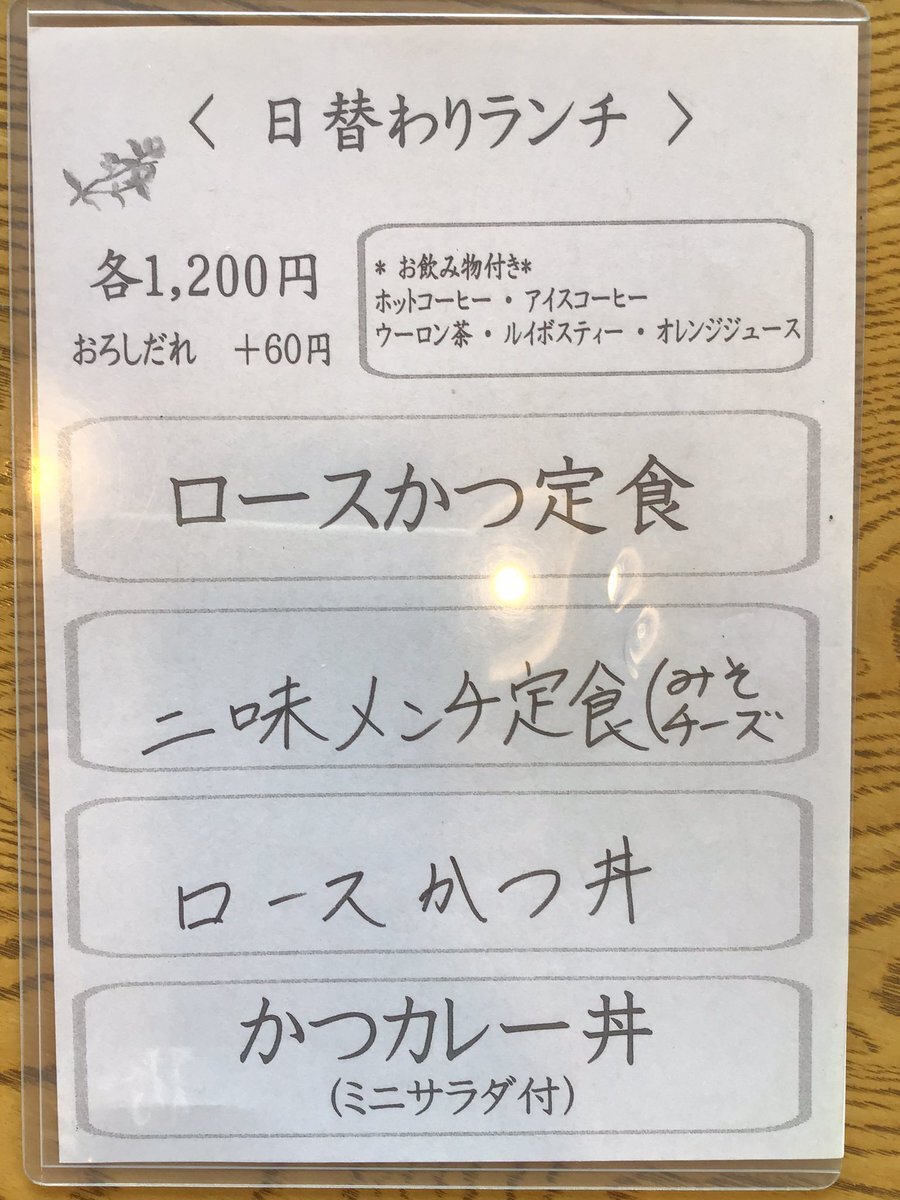 〈 日替わりランチ 〉
各1,200円
おろしだれ　+60円
* お飲み物付き*
ホットコーヒー・アイスコーヒー
ウーロン茶・ルイボスティー・オレンジジュース
ロースかつ定食
二味メンチ定食(みそ
チーズ
ロースかつ丼
かつカレー丼
(ミニサラダ付)